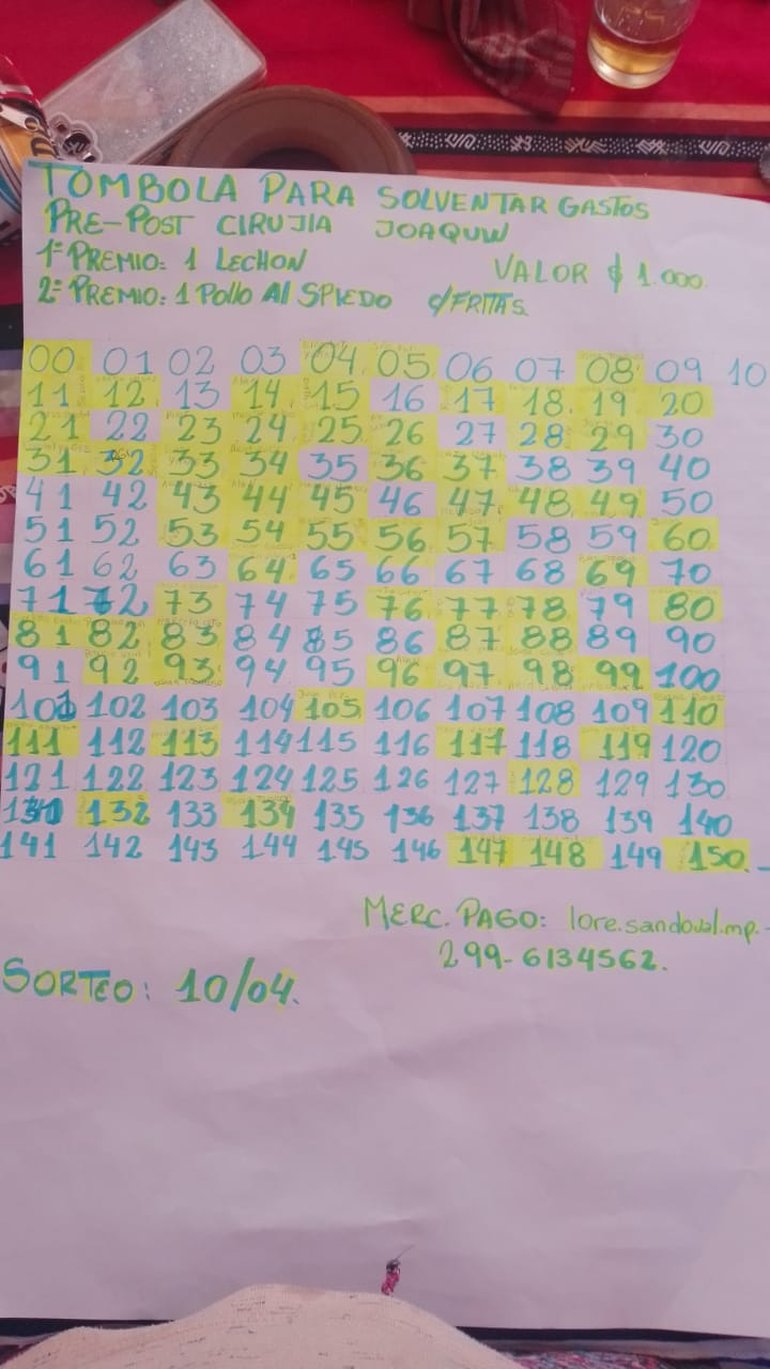 TOMBOLA PARA SOLVENTAR GASTOS
PRE-POST CIRUJIA JOAQUIN
1º PREMIO: 1 LECHON VALOR $1.000.
2º PREMIO: 1 Pollo Al SPIEDO c/FRITAS
00 01 02 03 04 05 06 07 08 09 10
11 12 13 14 15 16 17 18 19 20
21 22 23 24 25 26 27 28 29 30
31 32 33 34 35 36 37 38 39 40
41 42 43 44 45 46 47 48 49 50
51 52 53 54 55 56 57 58 59 60
61 62 63 64 65 66 67 68 69 70
71 72 73 74 75 76 77 78 79 80
81 82 83 84 85 86 87 88 89 90
91 92 93 94 95 96 97 98 99 100
101 102 103 104 105 106 107 108 109 110
111 112 113 114 115 116 117 118 119 120
121 122 123 124 125 126 127 128 129 130
131 132 133 134 135 136 137 138 139 140
141 142 143 144 145 146 147 148 149 150
MERC. PAGO: lore.sandoval.mp.
299-6134562.
SORTEO: 10/04.